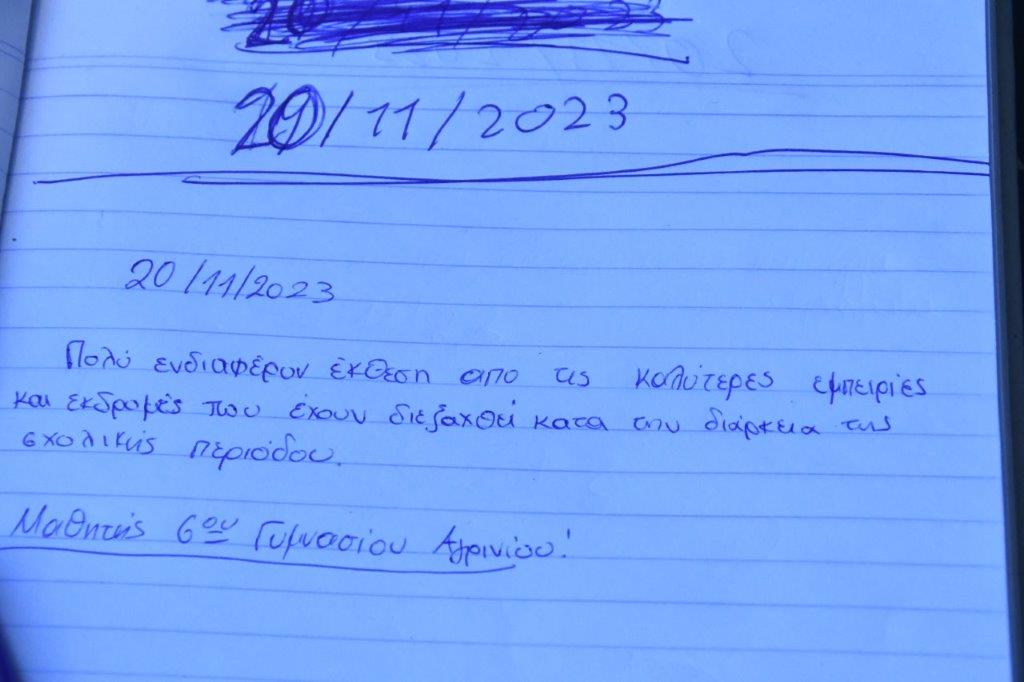 20/11/2023
20/11/2023
Πολύ ενδιαφέρον έκθεση απο τις καλύτερες εμπειρίες
και εκδρομές που έχουν διεξαχθεί κατα την διάρκεια της
σχολικής περιόδου.
Μαθητής 6ου Γυμνασίου Αγρινίου!